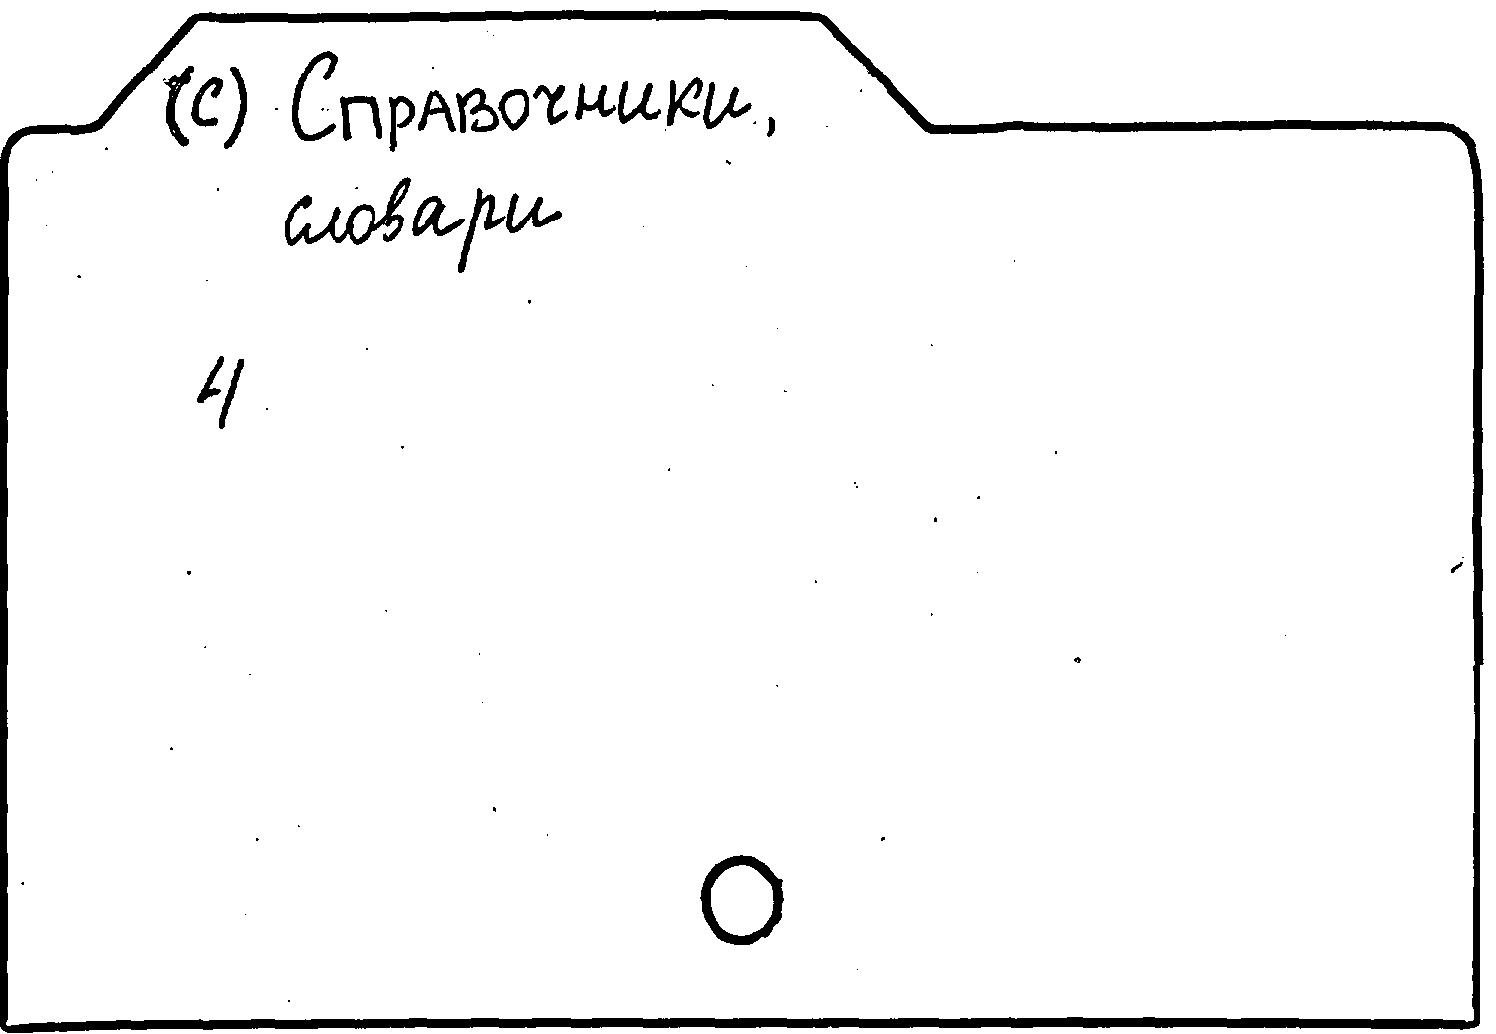 (С) Справочники,
словари
4